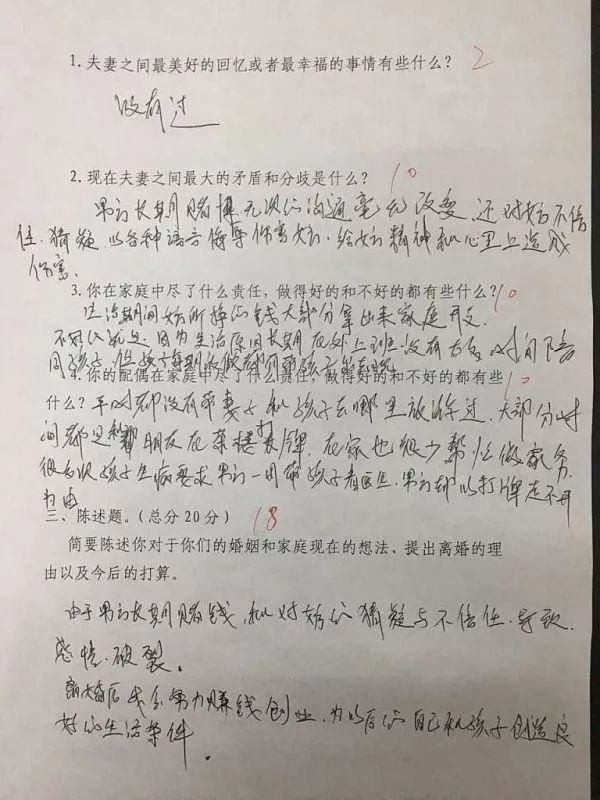 1. 夫妻之间最美好的回忆或者最幸福的事情有些什么？ 2
没有过
2. 现在夫妻之间最大的矛盾和分歧是什么？ 10
男方长期赌博,无次的沟通毫无改变,还对女方不信
任.猜疑.以各种语言侮辱伤害女方,给女方精神和心里上造成
伤害.
3. 你在家庭中尽了什么责任，做得好的和不好的都有些什么？ 10
生活期间女方所挣的钱大部分拿出来家庭开支.
不好的就是:因为生活原因长期在外上班.没有太多时间陪
同孩子,但
4. 你的配偶在家庭中尽了什么责任，做得好的和不好的都有些
什么？ 10 平时都没有带妻子和孩子去哪里旅游过.大部分时
间都是和朋友在茶楼打牌.在家也很少帮忙做家务.
很多次孩子生病要求男方一同带孩子看医生.男方却以打牌走不开
为由
三、陈述题。（总分20分） 18
简要陈述你对于你们的婚姻和家庭现在的想法、提出离婚的理
由以及今后的打算。
由于男方长期赌钱,和对女方的猜疑与不信任.导致.
感情.破裂.
离婚后我会努力赚钱创业,为以后的自己和孩子创造良
好的生活条件.